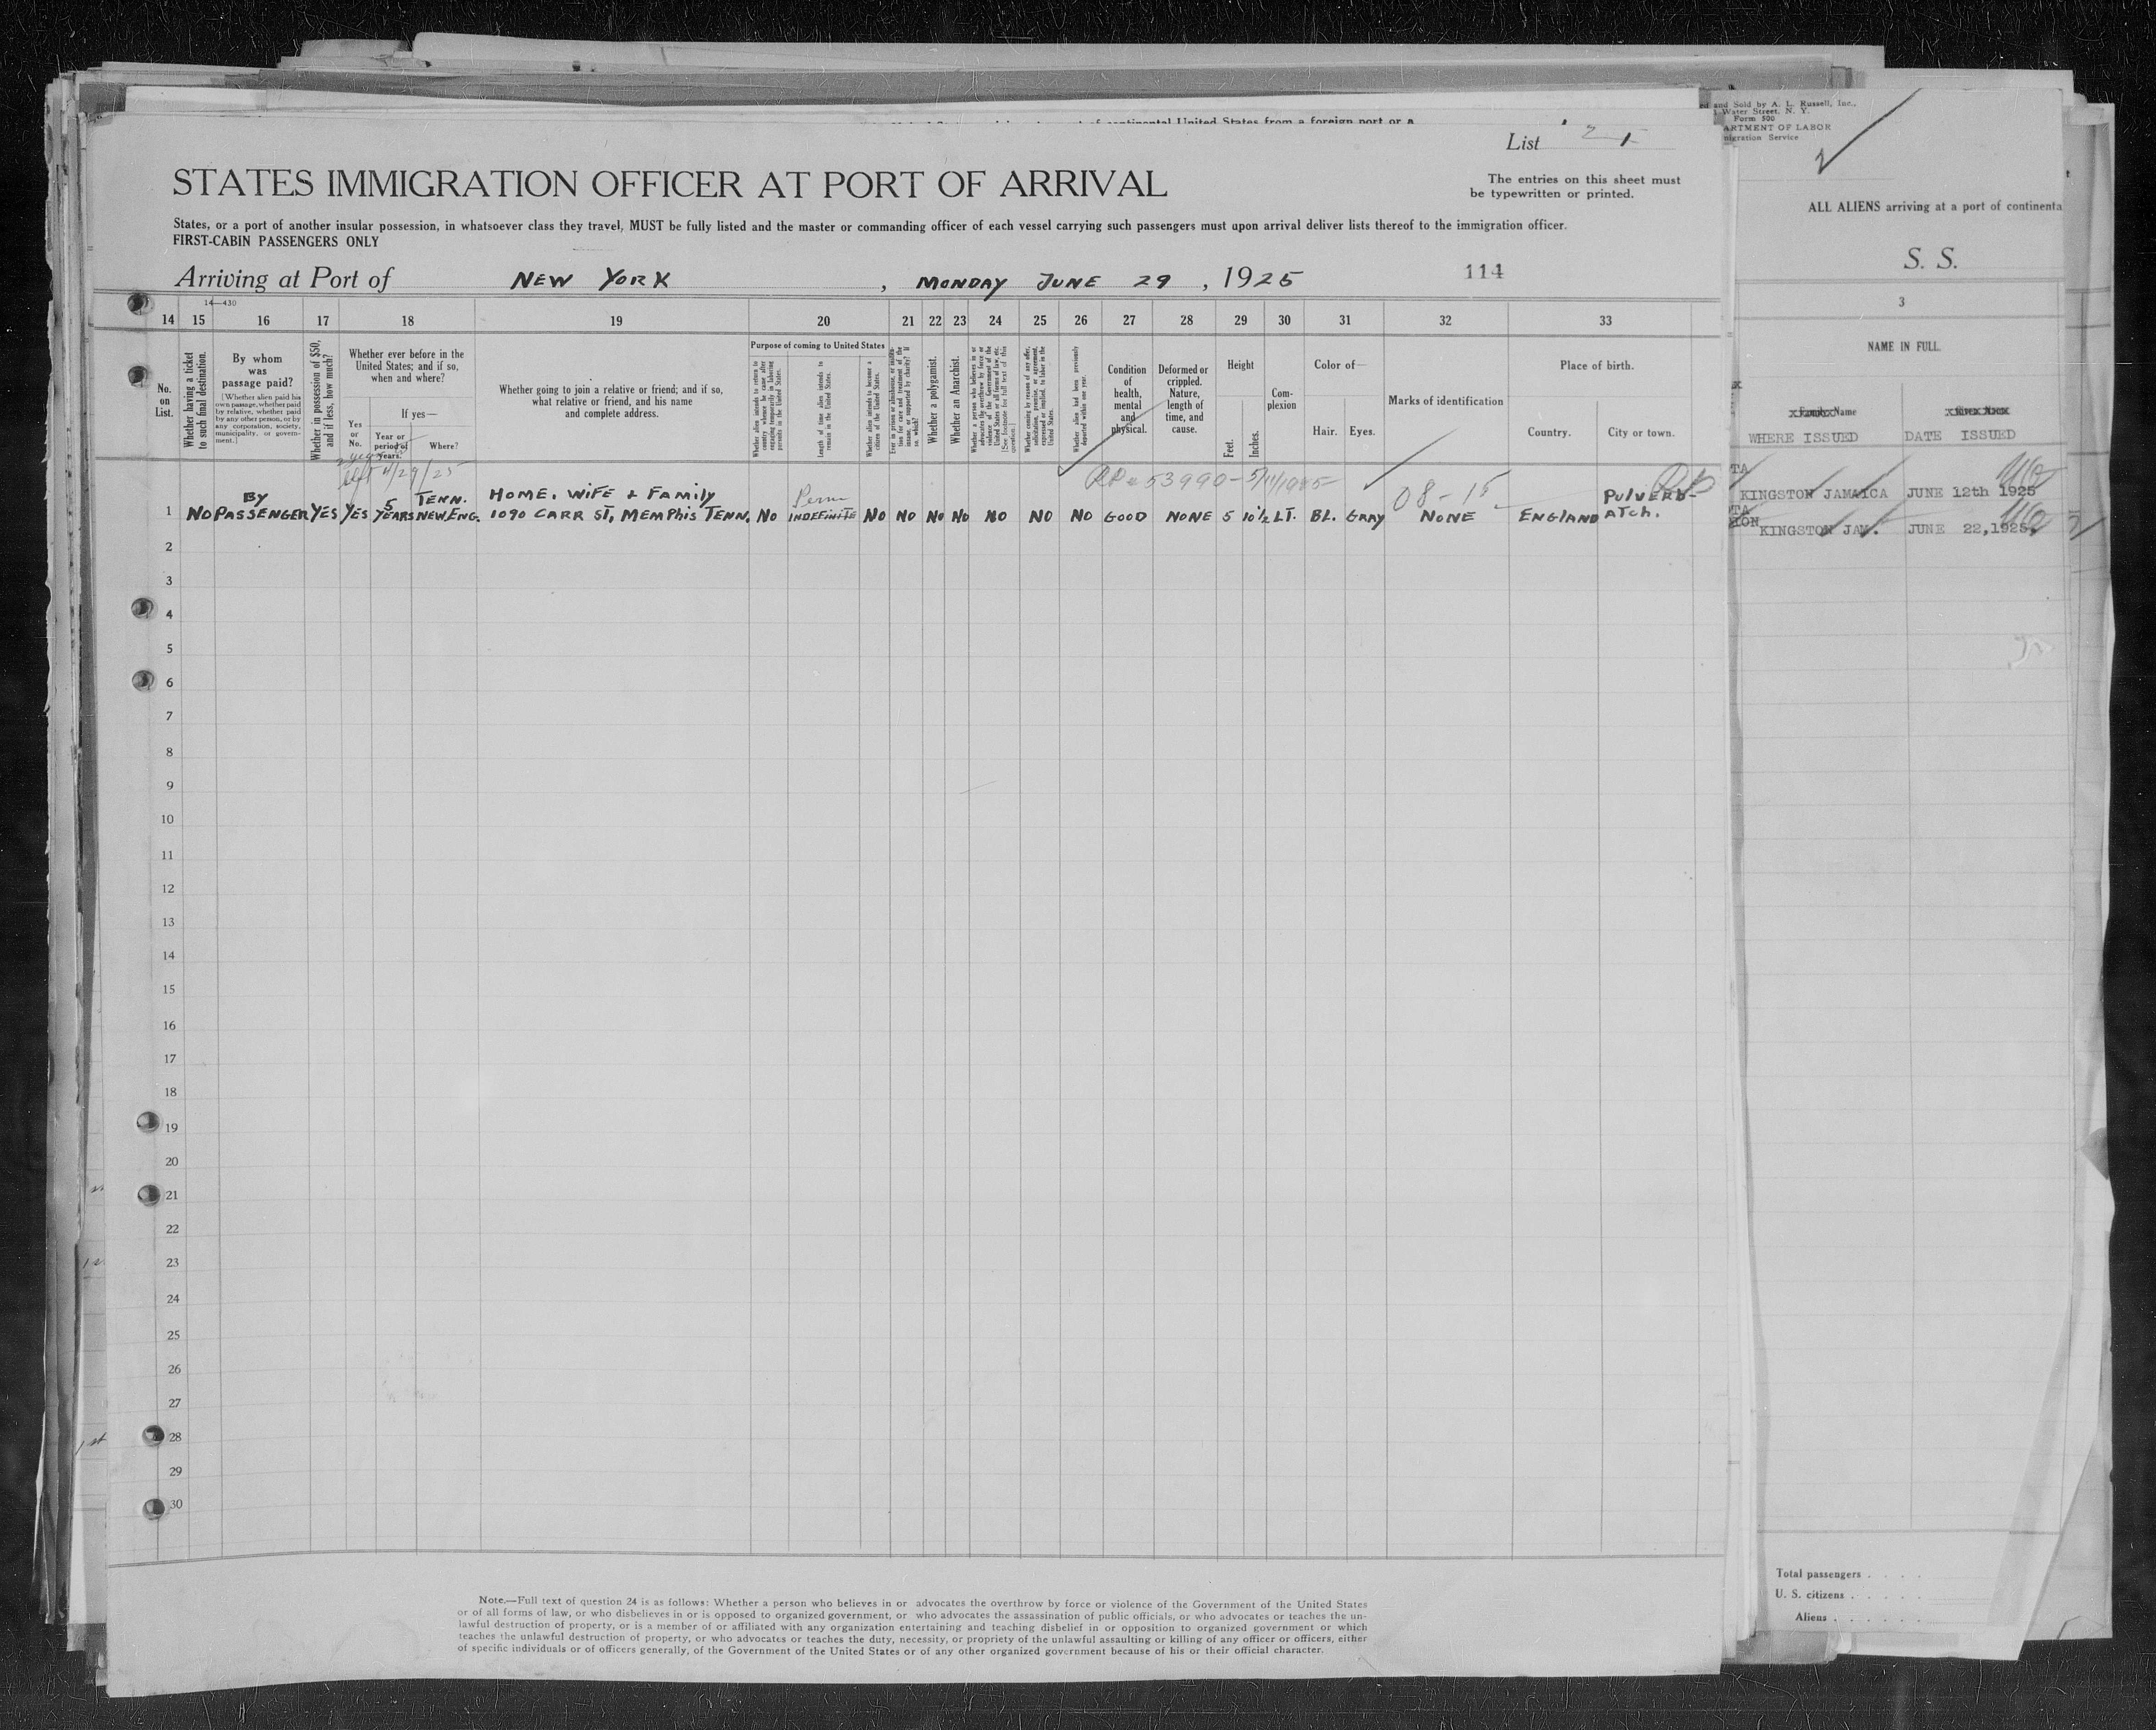 of continental United States from a foreign port or a
List
STATES IMMIGRATION OFFICER AT PORT OF ARRIVAL
The entries on this sheet must
be typewritten or printed.
States, or a port of another insular possession, in whatsoever class they travel, MUST be fully listed and the master or commanding officer of each vessel carrying such passengers must upon arrival deliver lists thereof to the immigration officer.
FIRST-CABIN PASSENGERS ONLY
Arriving at Port of NEW YORK, MONDAY JUNE 29, 1925
114
14—430
14 15 16 17 18 19 20 21 22 23 24 25 26 27 28 29 30 31 32 33
No. on List.
Whether having a ticket to such final destination.
By whom was passage paid?
[Whether alien paid his own passage, whether paid by relative, whether paid by any other person, or by any corporation, society, municipality, or government.]
Whether in possession of $50, and if less, how much?
Whether ever before in the United States; and if so, when and where?
Yes or No.
If yes—
Year or period of years.
Where?
Whether going to join a relative or friend; and if so, what relative or friend, and his name and complete address.
Purpose of coming to United States
Whether alien intends to return to country whence he came after engaging temporarily in laboring pursuits in the United States.
Length of time alien intends to remain in the United States.
Whether alien intends to become a citizen of the United States.
Whether a polygamist.
Whether an Anarchist.
Whether coming by reason of any offer, solicitation, promise, or agreement, expressed or implied, to labor in the United States.
Whether alien had been previously deported within one year.
Condition of health, mental and physical.
Deformed or crippled. Nature, length of time, and cause.
Height
Feet. Inches.
Complexion
Color of—
Hair. Eyes.
Marks of identification
Place of birth.
Country. City or town.
left 4/29/25
RP # 53990-5/11/1925
08-15
1 NO BY PASSENGER YES YES 5 YEARS TENN. NEW ENG. HOME. WIFE + FAMILY 1090 CARR ST, MEMPHIS TENN. NO Perm INDEFINITE NO NO NO NO NO NO NO GOOD NONE 5 10½ LT. BL. GRAY NONE ENGLAND PULVERB-ATCH.
2
3
4
5
6
7
8
9
10
11
12
13
14
15
16
17
18
19
20
21
22
23
24
25
26
27
28
29
30
Note.—Full text of question 24 is as follows: Whether a person who believes in or advocates the overthrow by force or violence of the Government of the United States
or of all forms of law, or who disbelieves in or is opposed to organized government, or who advocates the assassination of public officials, or who advocates or teaches the un-
lawful destruction of property, or is a member of or affiliated with any organization entertaining and teaching disbelief in or opposition to organized government or which
teaches the unlawful destruction of property, or who advocates or teaches the duty, necessity, or propriety of the unlawful assaulting or killing of any officer or officers, either
of specific individuals or of officers generally, of the Government of the United States or of any other organized government because of his or their official character.
and Sold by A. L. Russell, Inc.,
Water Street, N. Y.
Form 500
ARTMENT OF LABOR
migration Service
ALL ALIENS arriving at a port of continenta
S. S.
3
NAME IN FULL
Family Name
Given Name
WHERE ISSUED
DATE ISSUED
TA
KINGSTON JAMAICA JUNE 12th 1925
TA
ION
KINGSTON JAM. JUNE 22,1925.
Total passengers
U. S. citizens
Aliens